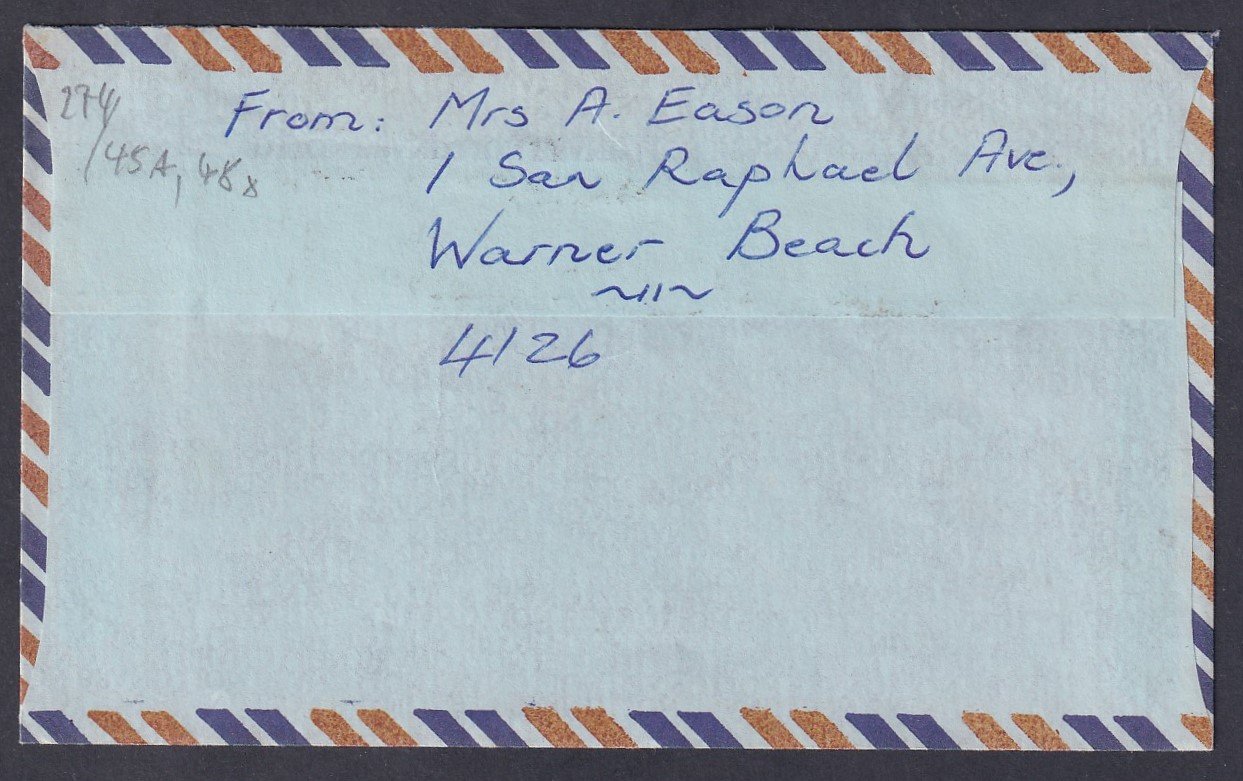 From: Mrs A. Eason
1 San Raphael Ave,
Warner Beach
4126
274/
/45A, 48x